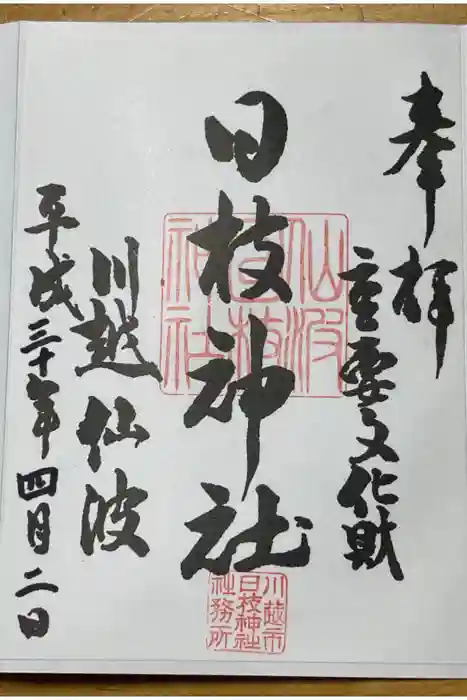 奉拝
重要文化財
日枝神社
仙波
日枝
神社
川越市
日枝神社
社務所
川越仙波
平成三十年四月二日